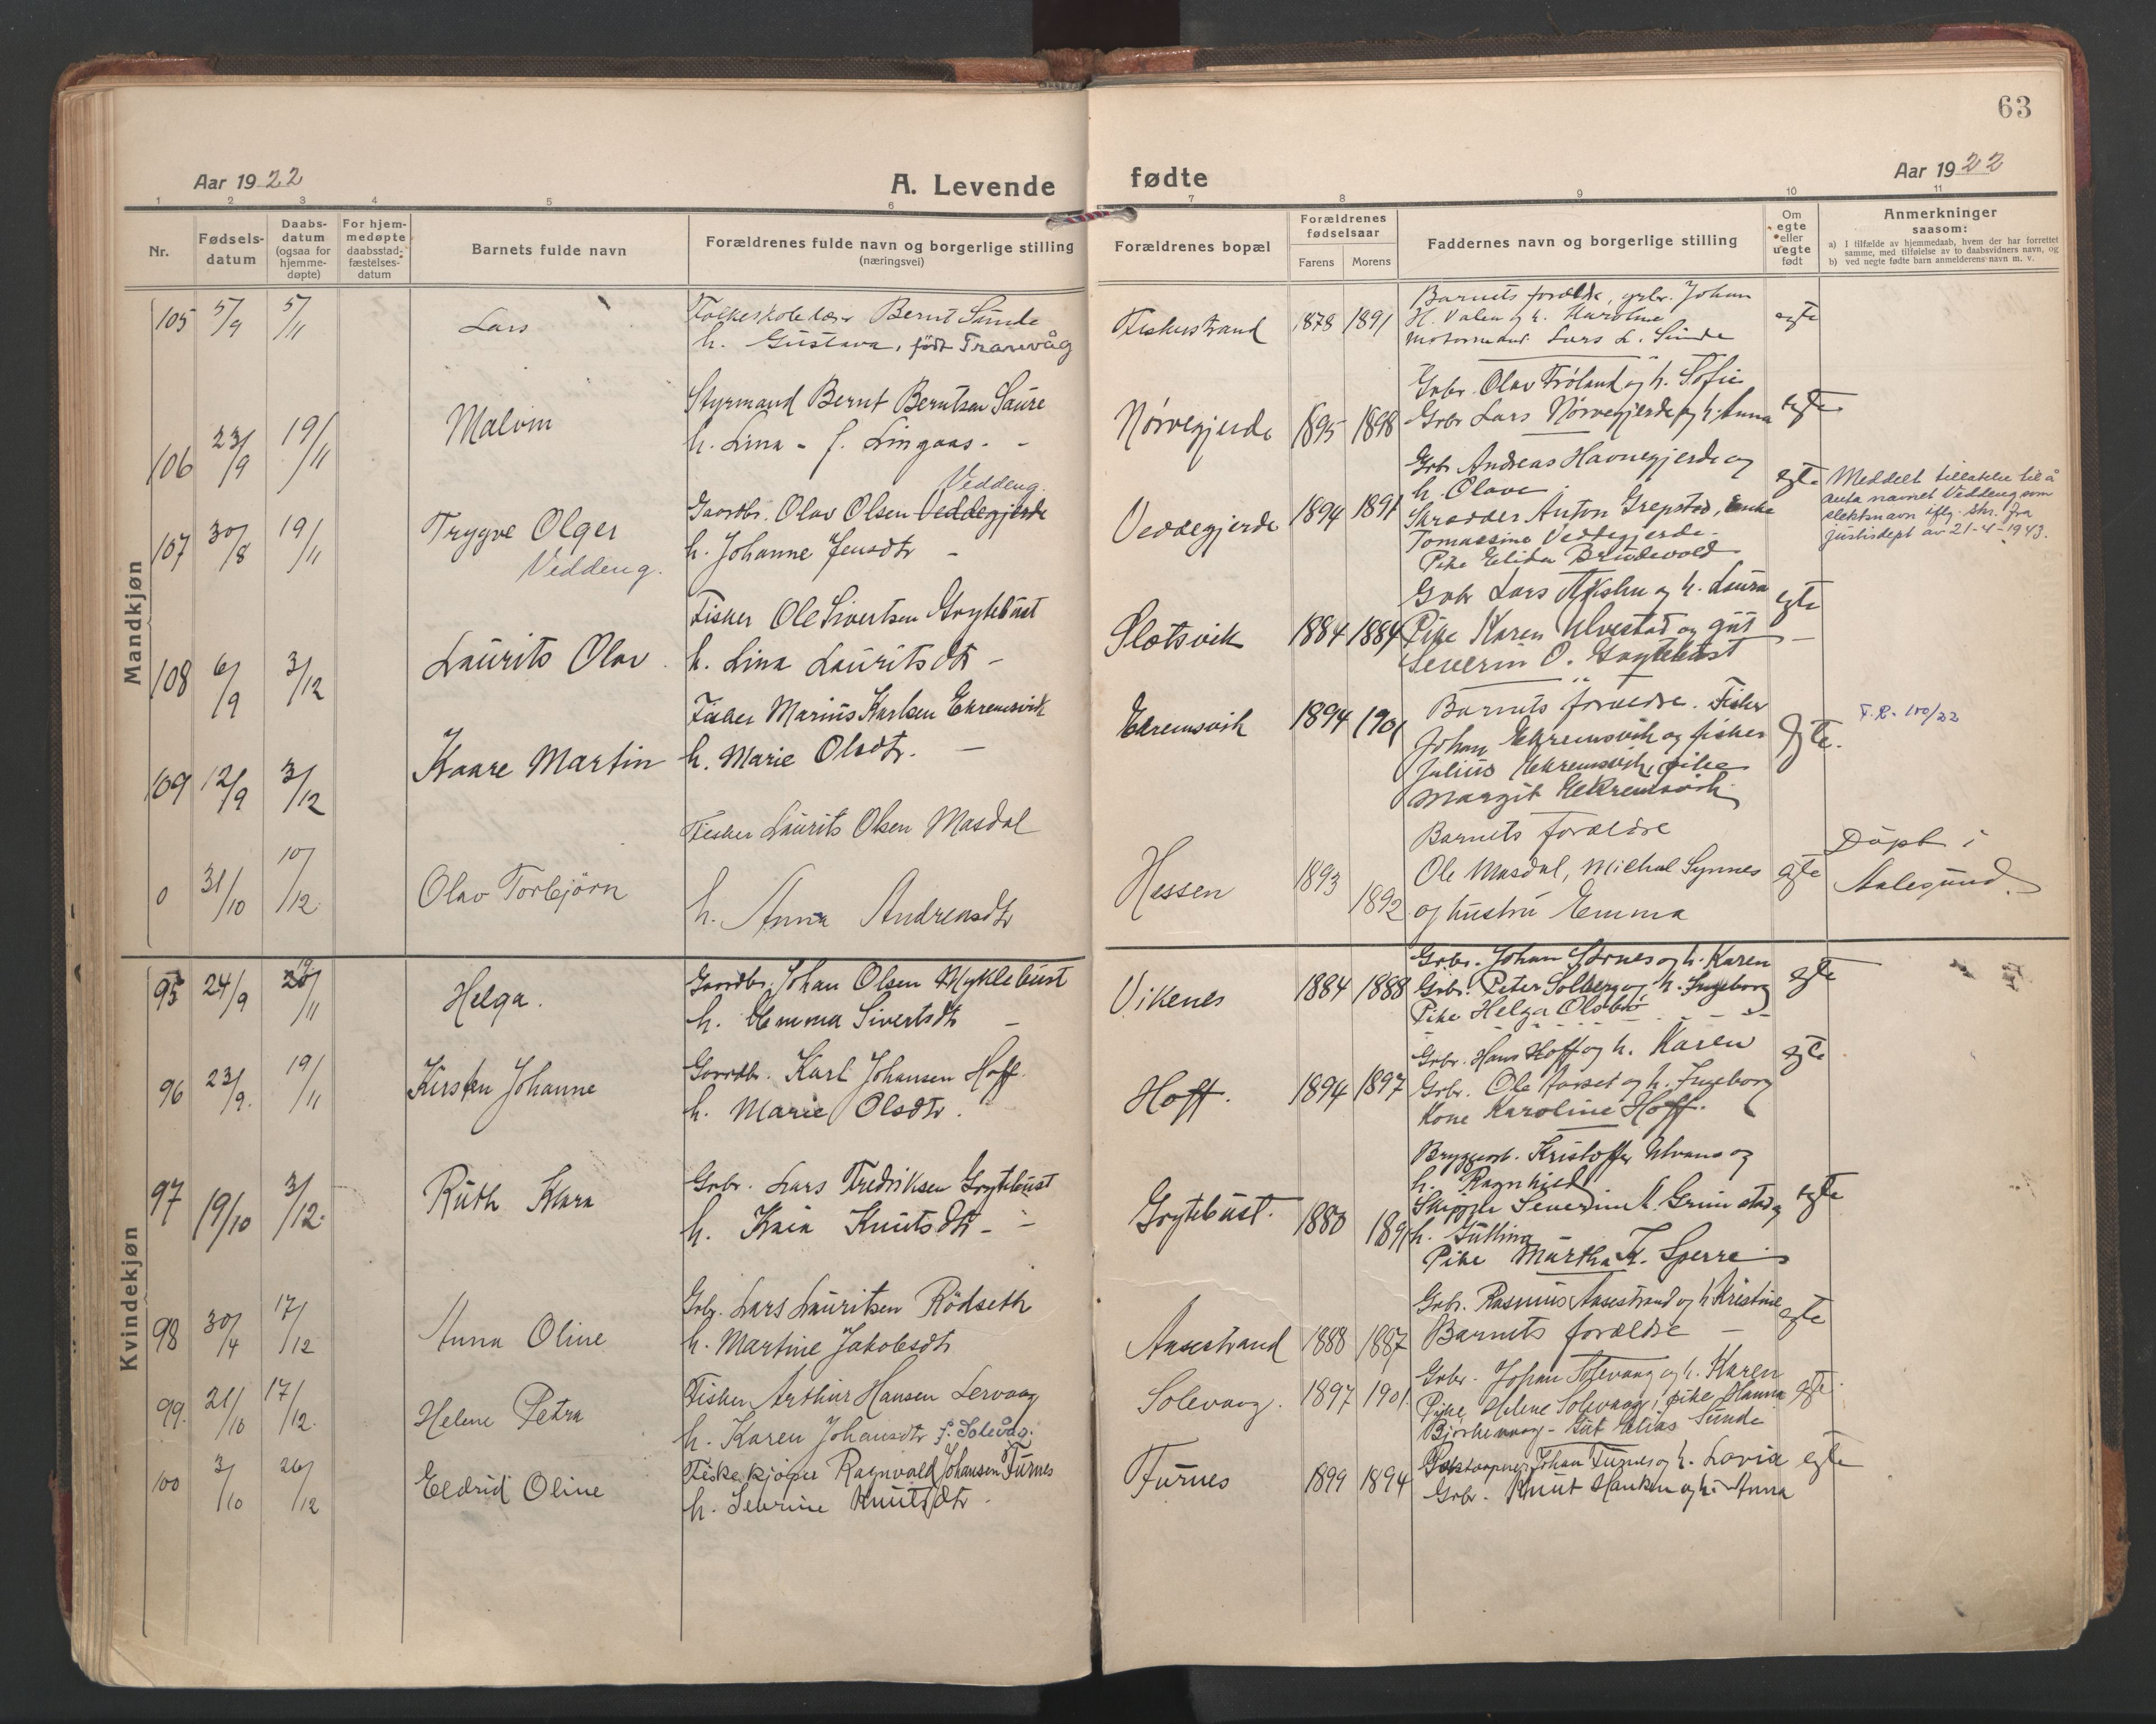 63
Aar 1922
A. Levende
fødte
Aar 1922
1 2 3 4 5 6 7 8 9 10 11
Nr.
Fødsels-
datum
Daabs-
datum
(ogsaa for
hjemme-
døpte)
For hjem-
medøpte
daabsstad-
fæstelses-
datum
Barnets fulde navn
Forældrenes fulde navn og borgerlige stilling
(næringsvei)
Forældrenes bopæl
Forældrenes
fødselsaar
Farens
Morens
Faddernes navn og borgerlige stilling
Om
egte
eller
uegte
født
Anmerkninger
saasom:
a) I tilfælde av hjemmedaab, hvem der har forrettet
samme, med tilføielse av to daabsvidners navn, og
b) ved uegte fødte barn anmelderens navn m. v.
Mandkjøn
105 5/9 5/11 Lars
Folkeskolelærer Bernt Sunde
h. Gustava, født Tranvåg
Fiskerstrand 1878 1891
Barnets forældre, grbr. Johan
H. Valen og h. Karoline
motormand Lars L. Sunde
egte
106 23/9 19/11 Malvin
Styrmand Bernt Berntsen Saure
h. Lina - f. Lingaas. -
Nørvegjerde 1895 1898
Grbr. Olav Frøland og h. Sofie
Grbr Lars Nørvegjerde og h. Anna
egte
107 30/8 19/11 Tryggve Olger
Veddeng.
Veddeng.
Gaardbr. Olav Olsen Veddegjerde
h. Johanne Jensdtr -
Veddegjerde 1894 1891
Grbr Andreas Havnegjerde og
h. Olave
Skrædder Anton Grepstad, Enke
Tomassine Veddegjerde.
Pike Elida Brudevold
egte
Meddelt tillatelse til å
anta navnet Veddeng som
slektsnavn iflg. skr. fra
justisdept av 21-4-1943.
108 6/9 3/12 Laurits Olav
Fisker Ole Sivertsen Grytebust
h. Lina Lauritsdtr -
Slotsvik 1884 1884
Grbr Lars og h. Laura
Pike Karen Ulvestad og gut
Severin O. Grytebust
egte
109 12/9 3/12 Kaare Martin
Fisker Marius Karlsen Ekremsvik
h. Marie Olsdtr. -
Ekremsvik 1894 1901
Barnets forældre. Fisker
Johan Ekremsvik og fisker
Julius Ekremsvik, pike
Margit Ekremsvik
egte.
F.R. 100/22
0 31/10 10/12 Olav Torbjörn
Fisker Laurits Olsen Masdal
h. Anna Andreasdtr
Hessen 1893 1892
Barnets forældre
Ole Masdal, Michal Synnes
og hustru Emma
egte
Döpt i
Aalesund.
Kvindekjøn
95 24/9 19/11 Helga.
Gaardbr. Johan Olsen Myklebust
h. Emma Sivertsdtr -
Vikenes 1884 1888
Grbr. Johan Sørnes og h. Karen
Grbr. Peter Solberg og h. Ingeborg
Pike Helga Olsbø
egte
96 23/9. 19/11 Kirsten Johanne
Gaardbr. Karl Johansen Hoff.
h. Marie Olsdtr.
Hoff. 1894 1897
Grbr. Hans Hoff og h. Karen
Grbr. Ole Aarset og h. Ingeborg
Kone Karoline Hoff.
egte
97 19/10 3/12. Ruth Klara
Grbr. Lars Fredriksen Grytebust
h. Kaia Knutsdtr -
Grytebust. 1880 1891
Bryggearb. Kristoffer Ulvans og
h. Ragnhild
Skipper Severin A. Grimstad og
h. Gutlina
Pike Martha K. Sperre
egte
98 30/4 17/12 Anna Oline
Grbr. Lars Lauritsen Rödseth
h. Martine Jakobsdtr
Aasestrand 1888 1887
Grbr. Rasmus Aasestrand og h. Kristine
Barnets forældre -
egte
99. 21/10 17/12. Helene Petra
Fisker Arthur Hansen Lervaag
h. Karen Johansdtr f. Solevåg.
Solevaag. 1897 1901.
Grbr. Johan Solevaag og h. Karen
Pike Helene Solevaag, pike Hanna
Bjørkevaag - Gut Elias Sunde
egte.
100 3/10 26/12 Eldrid Oline
Fiskekjøper Ragnvald Johansen Furnes
h. Sevrine Knutsdtr.
Furnes 1899 1894
Johan Furnes og h. Lovia
Grbr. Knut Hanken og h. Anna
egte